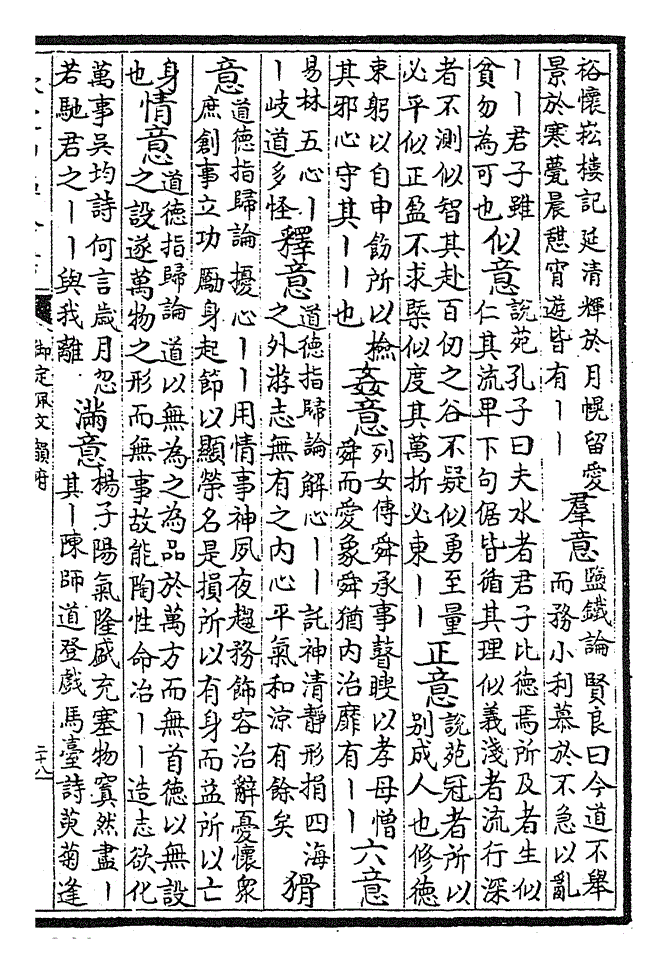 裕懷崧樓記延清輝於月幌留愛
景於寒甍晨憩宵遊皆有丨丨
羣意
鹽鐵論賢良曰今道不舉
而務小利慕於不急以亂
丨丨君子雖
貧勿為可也
似意
說苑孔子曰夫水者君子比德焉所及者生似
仁其流卑下句倨皆循其理似義淺者流行深
者不測似智其赴百仞之谷不疑似勇至量
必平似正盈不求槩似度其萬折必東丨丨
正意
說苑冠者所以
别成人也修德
束躬以自申飭所以撿
其邪心守其丨丨也
姦意
列女傳舜承事瞽瞍以孝母憎
舜而愛象舜猶内治靡有丨丨
六意
易林五心丨
丨岐道多怪
釋意
道德指歸論解心丨丨託神清静形捐四海
之外游志無有之内心平氣和涼有餘矣
猾
意
道德指歸論擾心丨丨用情事神夙夜趨務飾容治辭憂懷衆
庶創事立功勵身起節以顯榮名是損所以有身而益所以亡
身
也
情意
道德指歸論道以無為之為品於萬方而無首德以無設
之設遂萬物之形而無事故能陶性命冶丨丨造志欲化
萬事吳均詩何言歲月忽
若馳君之丨丨與我離
滿意
楊子陽氣隆盛充塞物窴然盡丨
其丨陳師道登戲馬臺詩萸菊逢
御定佩文韻府
二十八